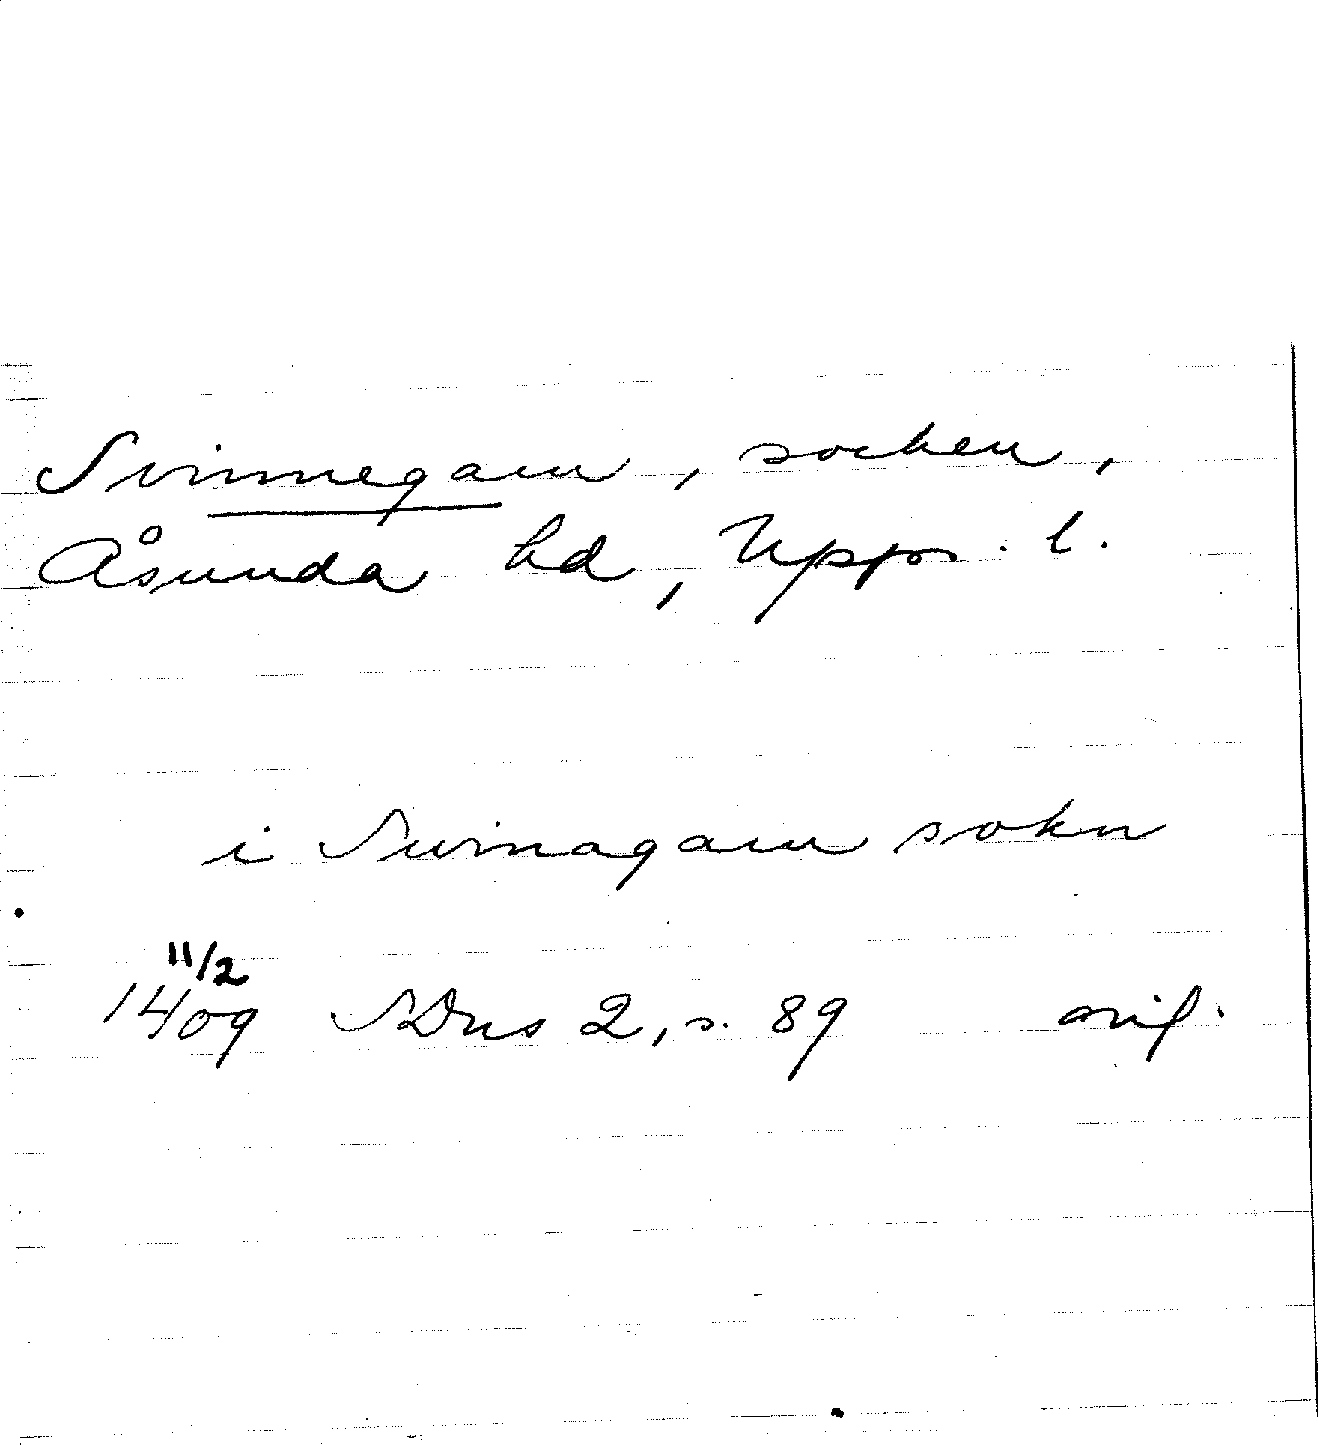 Svinnegarn, socken,
Åsunda hd, Upps. l.
i Swinagarn sokn
11/2
1409 SDns 2, s. 89 orig.